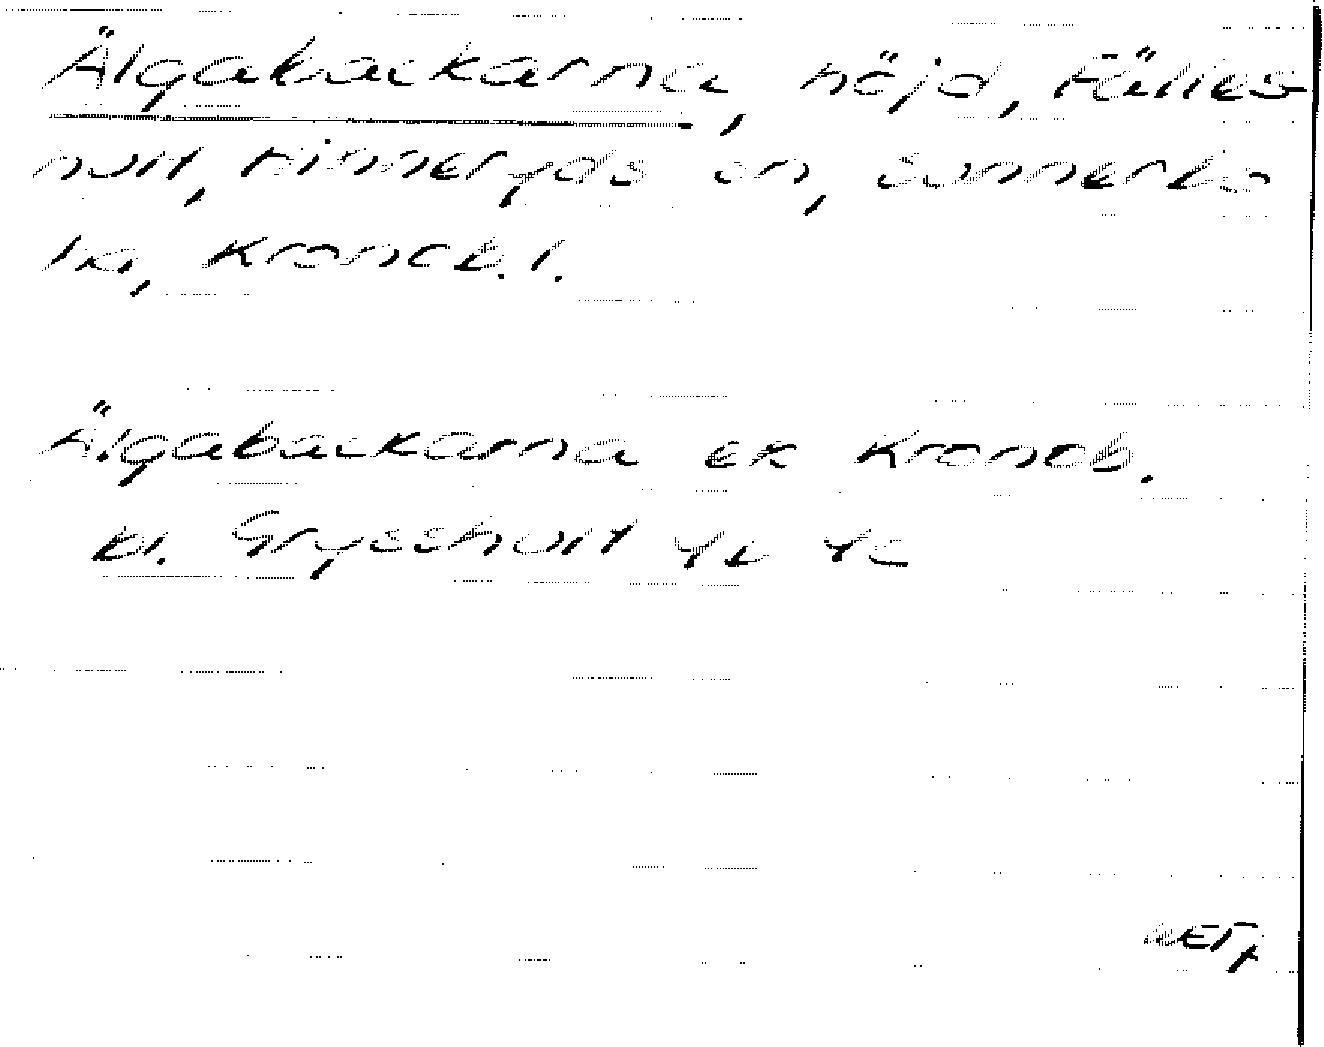 Älgabackarna, höjd, Fälles-
hult, Hinneryds sn, Sunnerbo
hd, Kronob. l.
Älgabackarna EK Kronob.
bl. Grysshult